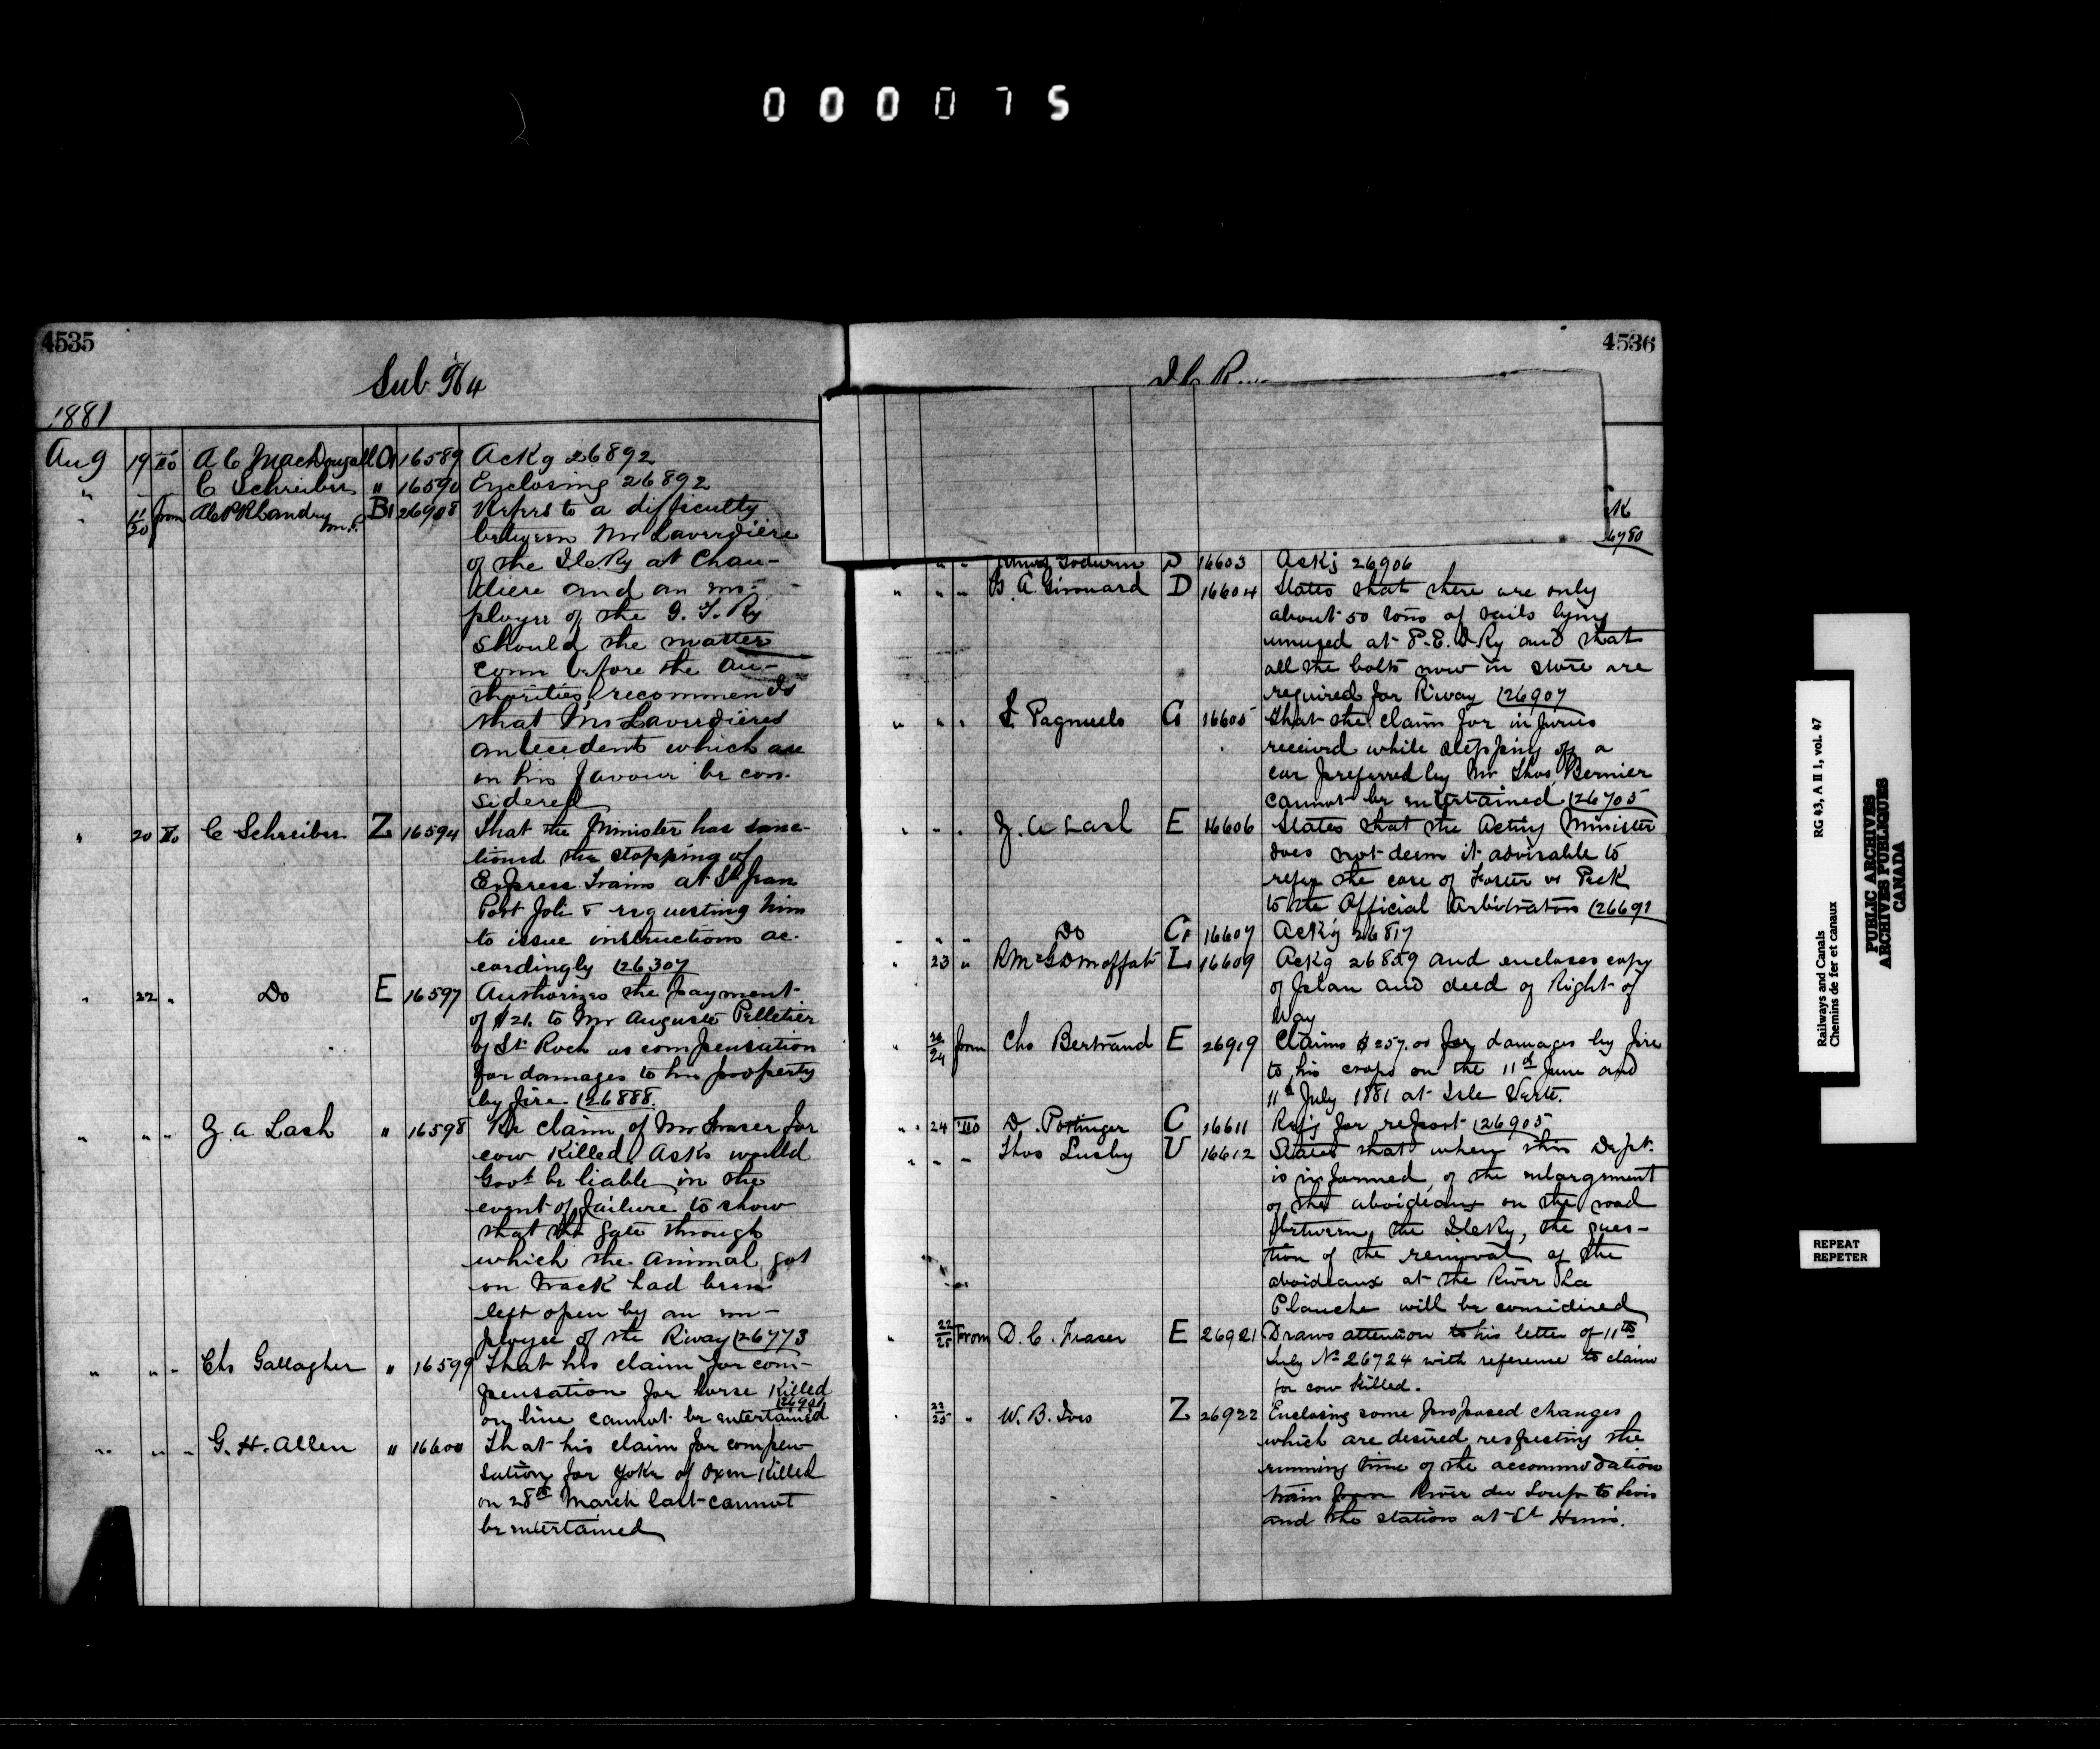 000075
4535
Sub. 564
1881
Aug 19 To A C MacDougall A 16589 Ackg 26892
" " " C Schreiber " 16590 Enclosing 26892
" 11/20 from A P R Landry M.P. B1 26908 Refers to a difficulty
between Mr Laverdière
of the I.C.Ry at Chau-
diere and an em-
ployee of the G. T. Ry
should the matter
come before the au-
thorities, recommends
that Mr Laverdières
antecedents which are
in his favour be con-
sidered
" 20 To C Schreiber Z 16594 That the Minister has sanc-
tioned the stopping of
Express Trains at St Jean
Port Joli & requesting him
to issue instructions ac-
cordingly (26307
" 22 " Do E 16597 Authorizes the payment
of $21. to Mr Auguste Pelletier
of St Roch as compensation
for damages to his property
by fire (26888.
" " " Z. A Lash " 16598 Re claim of Mr Fraser for
cow killed Asks would
Govt be liable in the
event of failure to show
that the gate through
which the animal got
on track had been
left open by an em-
ployee of the R'way (26773
" " " Chs Gallagher " 16599 That his claim for com-
pensation for horse killed
on line cannot be entertained
" " " G. H. Allen " 16600 That his claim for compen-
sation for yoke of oxen killed
on 28th March last cannot
be entertained
4536
I C R
K
" " Godwin D 16603 Ackg 26906
" " " G. A Girouard D 16604 States that there are only
about 50 tons of rails lying
unused at P.E.I. Ry and that
all the bolts now in store are
required for R'way (26907
" " " S. Pagnuelo G 16605 that the claim for injuries
received while stepping off a
car preferred by Mr Thos Bernier
cannot be entertained (26705
" " " Z. A Lash E 16606 States that the Acting Minister
does not deem it advisable to
refer the case of Foster vs Peck
to the Official Arbitrators (26691
" " " Do C1 16607 Ackg 26817
" 23 " R McG D Moffat L 16609 Ackg 26859 and encloses copy
of plan and deed of Right of
Way
" 20/24 from Chs Bertrand E 26919 Claims $257.00 for damages by fire
to his crops on the 11th June and
11th July 1881 at Isle Verte.
" " 24 To D. Pottinger C 16611 Refg for report (26905
" " " Thos Lusby U 16612 States that when this Dept.
is informed, of the enlargement
of the aboideaux on the road
between the I.C.Ry, the ques-
tion of the removal of the
aboideaux at the River La
Planche will be considered
" 22/25 From D. C. Fraser E 26921 Draws attention to his letter of 11th
July No 26724 with reference to claim
for cow killed.
" 23/25 " W. B. Ives Z 26922 Enclosing some proposed changes
which are desired respecting the
running time of the accommodation
train from River du Loup to Levis
and the station at St Henri.
Railways and Canals RG 43, A II 1, vol. 47
Chemins de fer et canaux
PUBLIC ARCHIVES
ARCHIVES PUBLIQUES
CANADA
REPEAT
REPETER